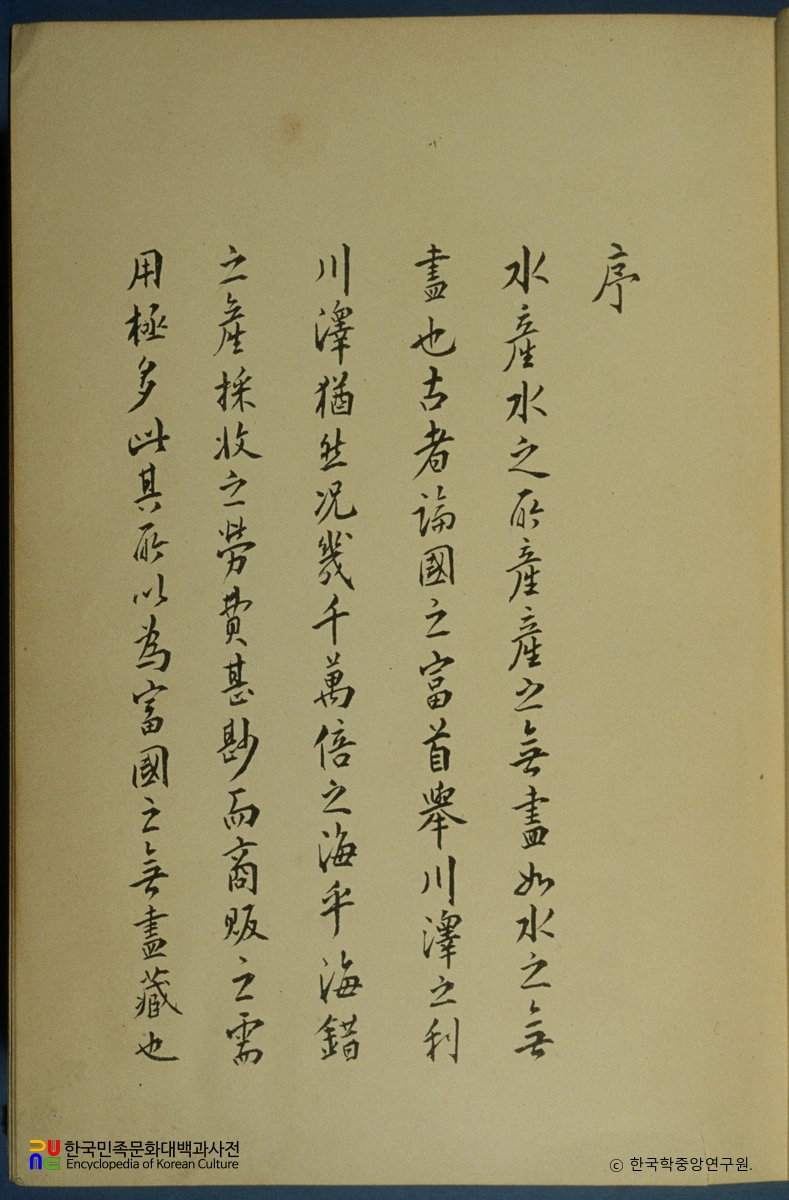 序
水産水之所産産之無盡如水之無
盡也古者論國之富首擧川澤之利
川澤猶然况幾千萬倍之海乎海錯
之産採收之勞費甚尠而商販之需
用極多此其所以為富國之無盡藏也
한국민족문화대백과사전
Encyclopedia of Korean Culture
© 한국학중앙연구원.